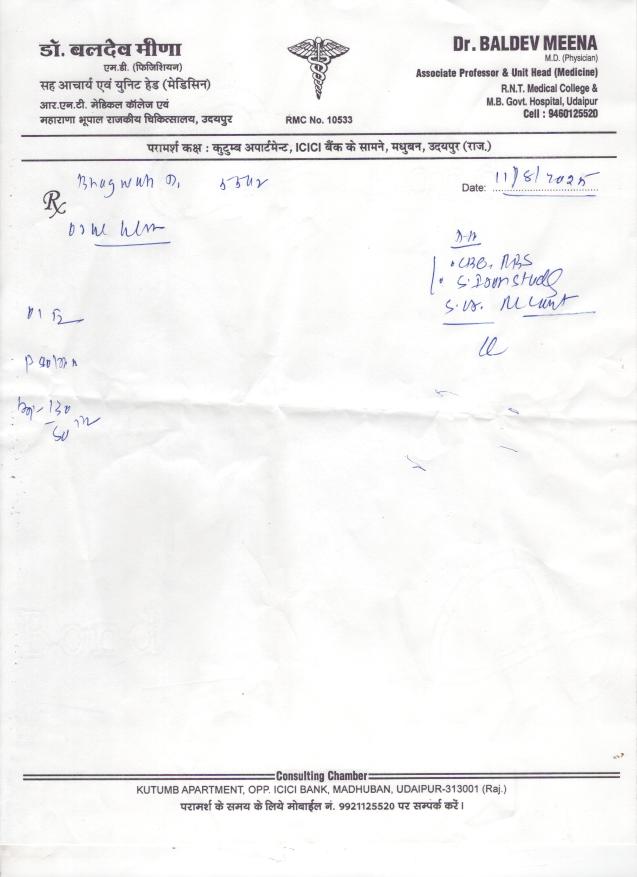 डॉ. बलदेव मीणा
एम.डी. (फिजिशियन)
सह आचार्य एवं युनिट हेड (मेडिसिन)
आर.एन.टी. मेडिकल कॉलेज एवं
महाराणा भूपाल राजकीय चिकित्सालय, उदयपुर
RMC No. 10533
Dr. BALDEV MEENA
M.D. (Physician)
Associate Professor & Unit Head (Medicine)
R.N.T. Medical College &
M.B. Govt. Hospital, Udaipur
Cell : 9460125520
परामर्श कक्ष : कुटुम्ब अपार्टमेन्ट, ICICI बैंक के सामने, मधुबन, उदयपुर (राज.)
Bhagwan
Date: 11/8/2025
Rx
CBC, RBS
S. Iron Study
Consulting Chamber
KUTUMB APARTMENT, OPP. ICICI BANK, MADHUBAN, UDAIPUR-313001 (Raj.)
परामर्श के समय के लिये मोबाईल नं. 9921125520 पर सम्पर्क करें।